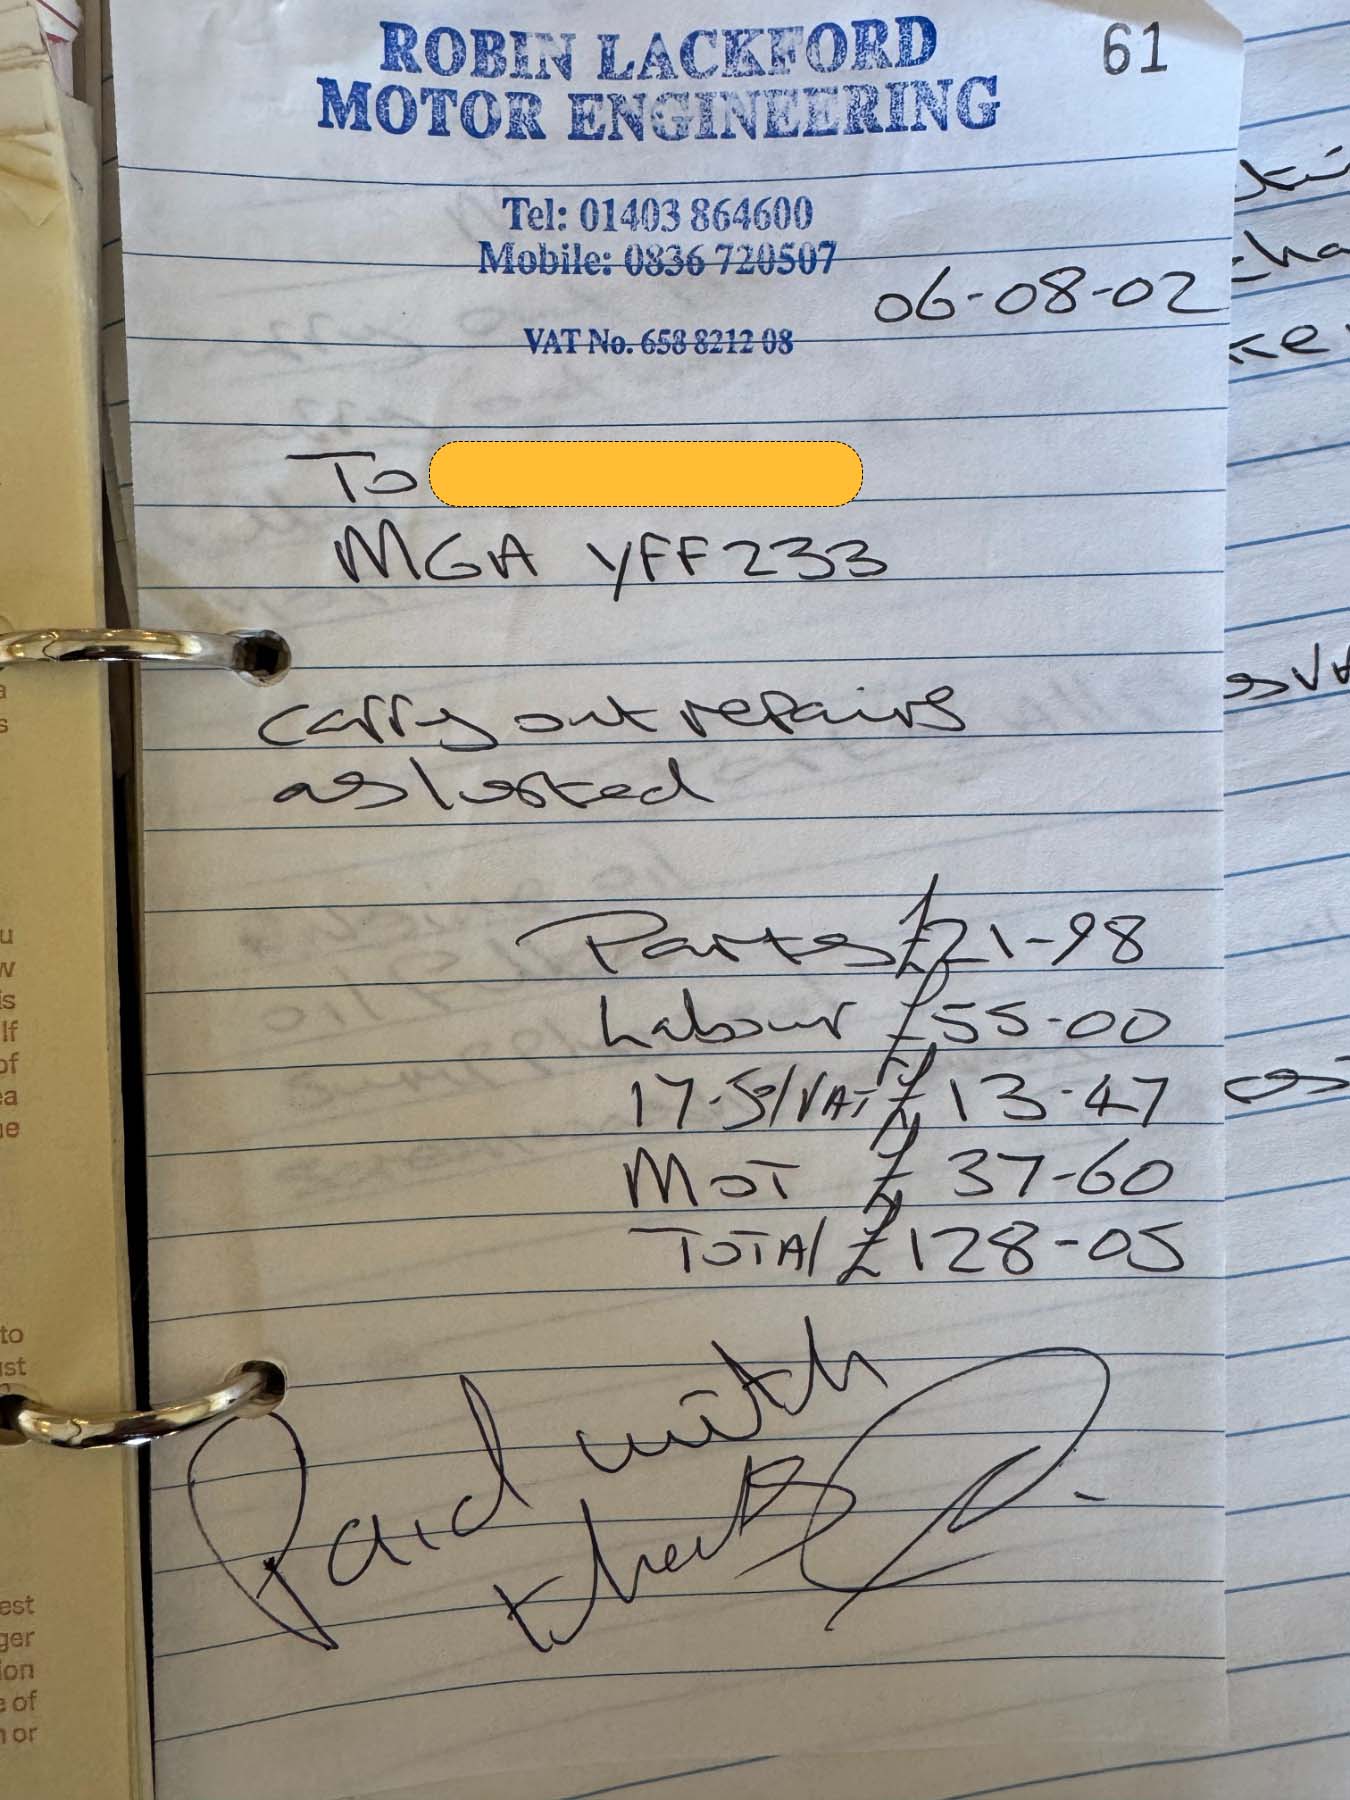 ROBIN LACKFORD
MOTOR ENGINEERING
61
Tel: 01403 864600
Mobile: 0836 720507
06-08-02
VAT No. 658 8212 08
To
MGA YFF233
carry out repairs
as listed
Parts £21-98
Labour £55-00
17.5%VAT £13-47
MOT £37-60
TOTAl £128-05
Paid with
thanks
u
w
is
If
of
ea
ne
to
ust
est
ger
ion
e of
n or